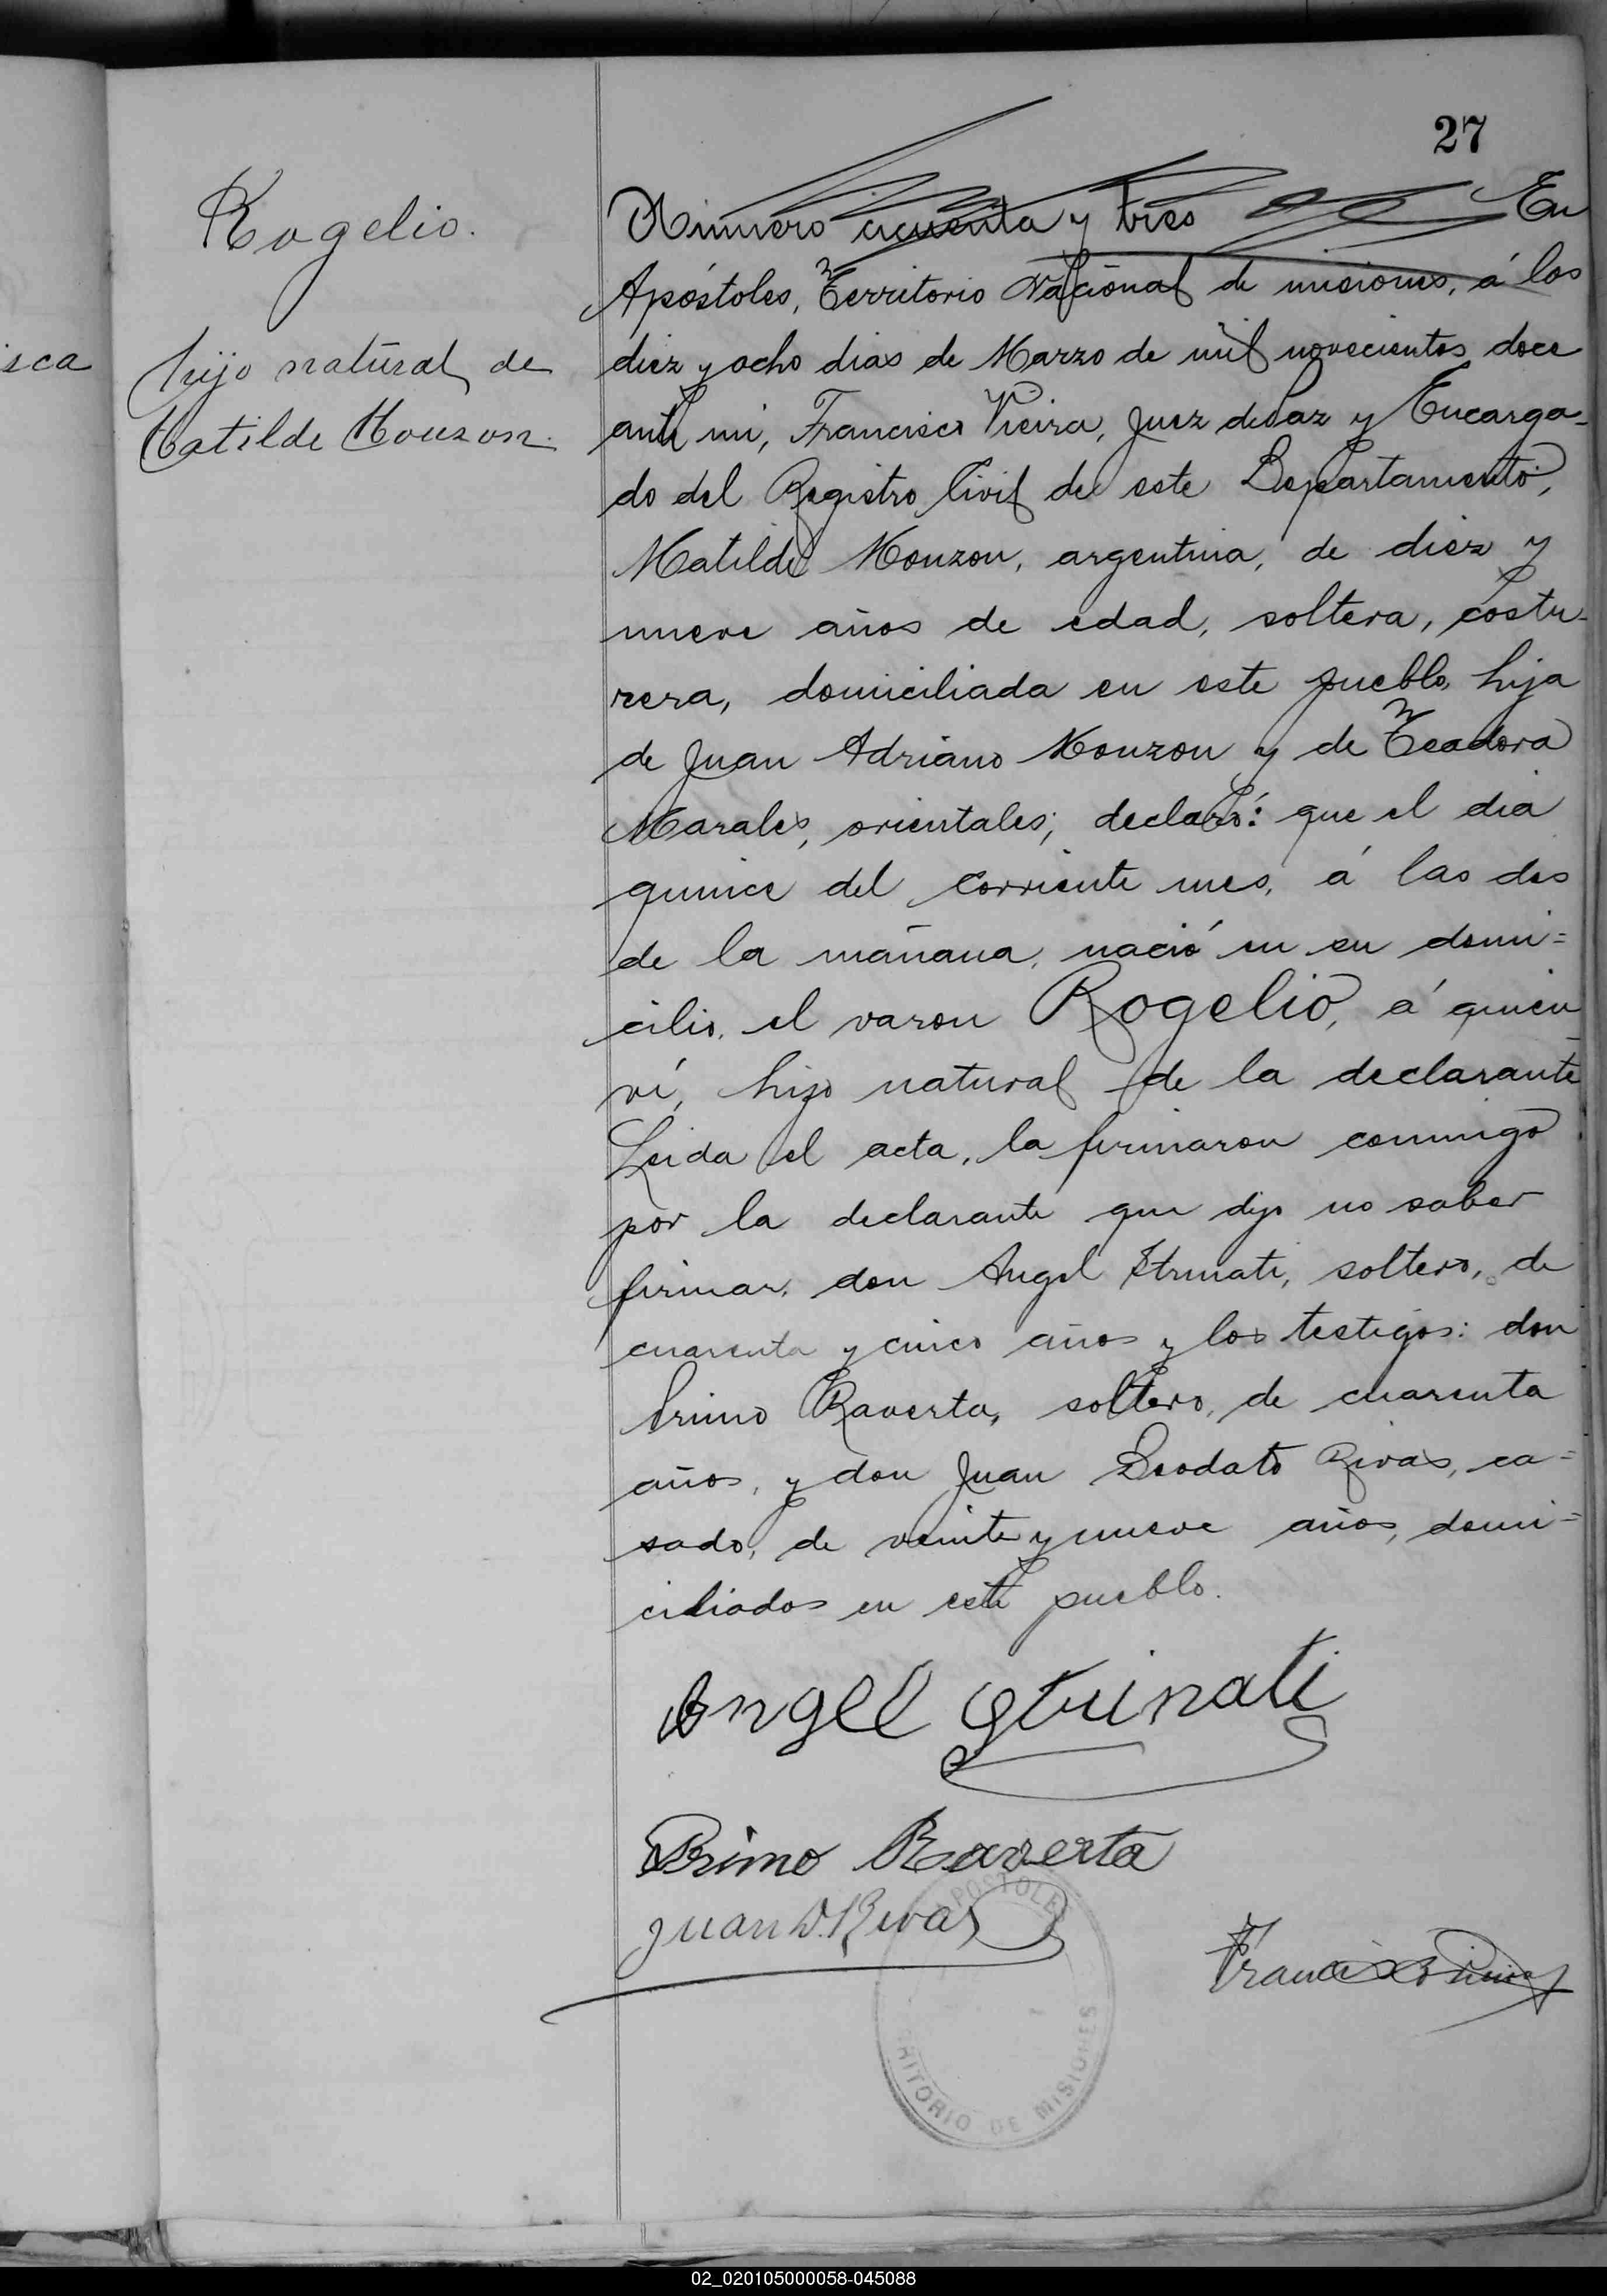 27
Rogelio.
hijo natural de
Matilde Monzon.
isca
Número cicuenta y tres En
Apóstoles, Territorio Nacional de misiones, á los
diez y ocho dias de Marzo de mil novecientos doce
ante mi, Francisco Vieira, Juez de Paz y Encarga-
do del Registro Civil de este Departamento,
Matilde Monzon, argentina, de diez y
nueve años de edad, soltera, costu-
rera, domiciliada en este pueblo, hija
de Juan Adriano Monzon y de Teadora
Marales, orientales; declaró: que el dia
quince del corriente mes, á las dos
de la mañana, nació en su domi=
cilio, el varon Rogelio, á quien
ví, hijo natural de la declarante
Leida el acta, la firmaron conmigo
por la declarante que dijo no saber
firmar, don Angel Strinati, soltero, de
cuarenta y cinco años y los testigos: don
Primo Raverta, soltero, de cuarenta
años, y don Juan Deodato Rivas, ca=
sado, de veinte y nueve años, domi=
ciliados en este pueblo.
Angel Strinati
Primo Raverta
Juan D. Rivas
Francisco Vieira
APOSTOLES
RITORIO DE MISIONES
02_020105000058-045088